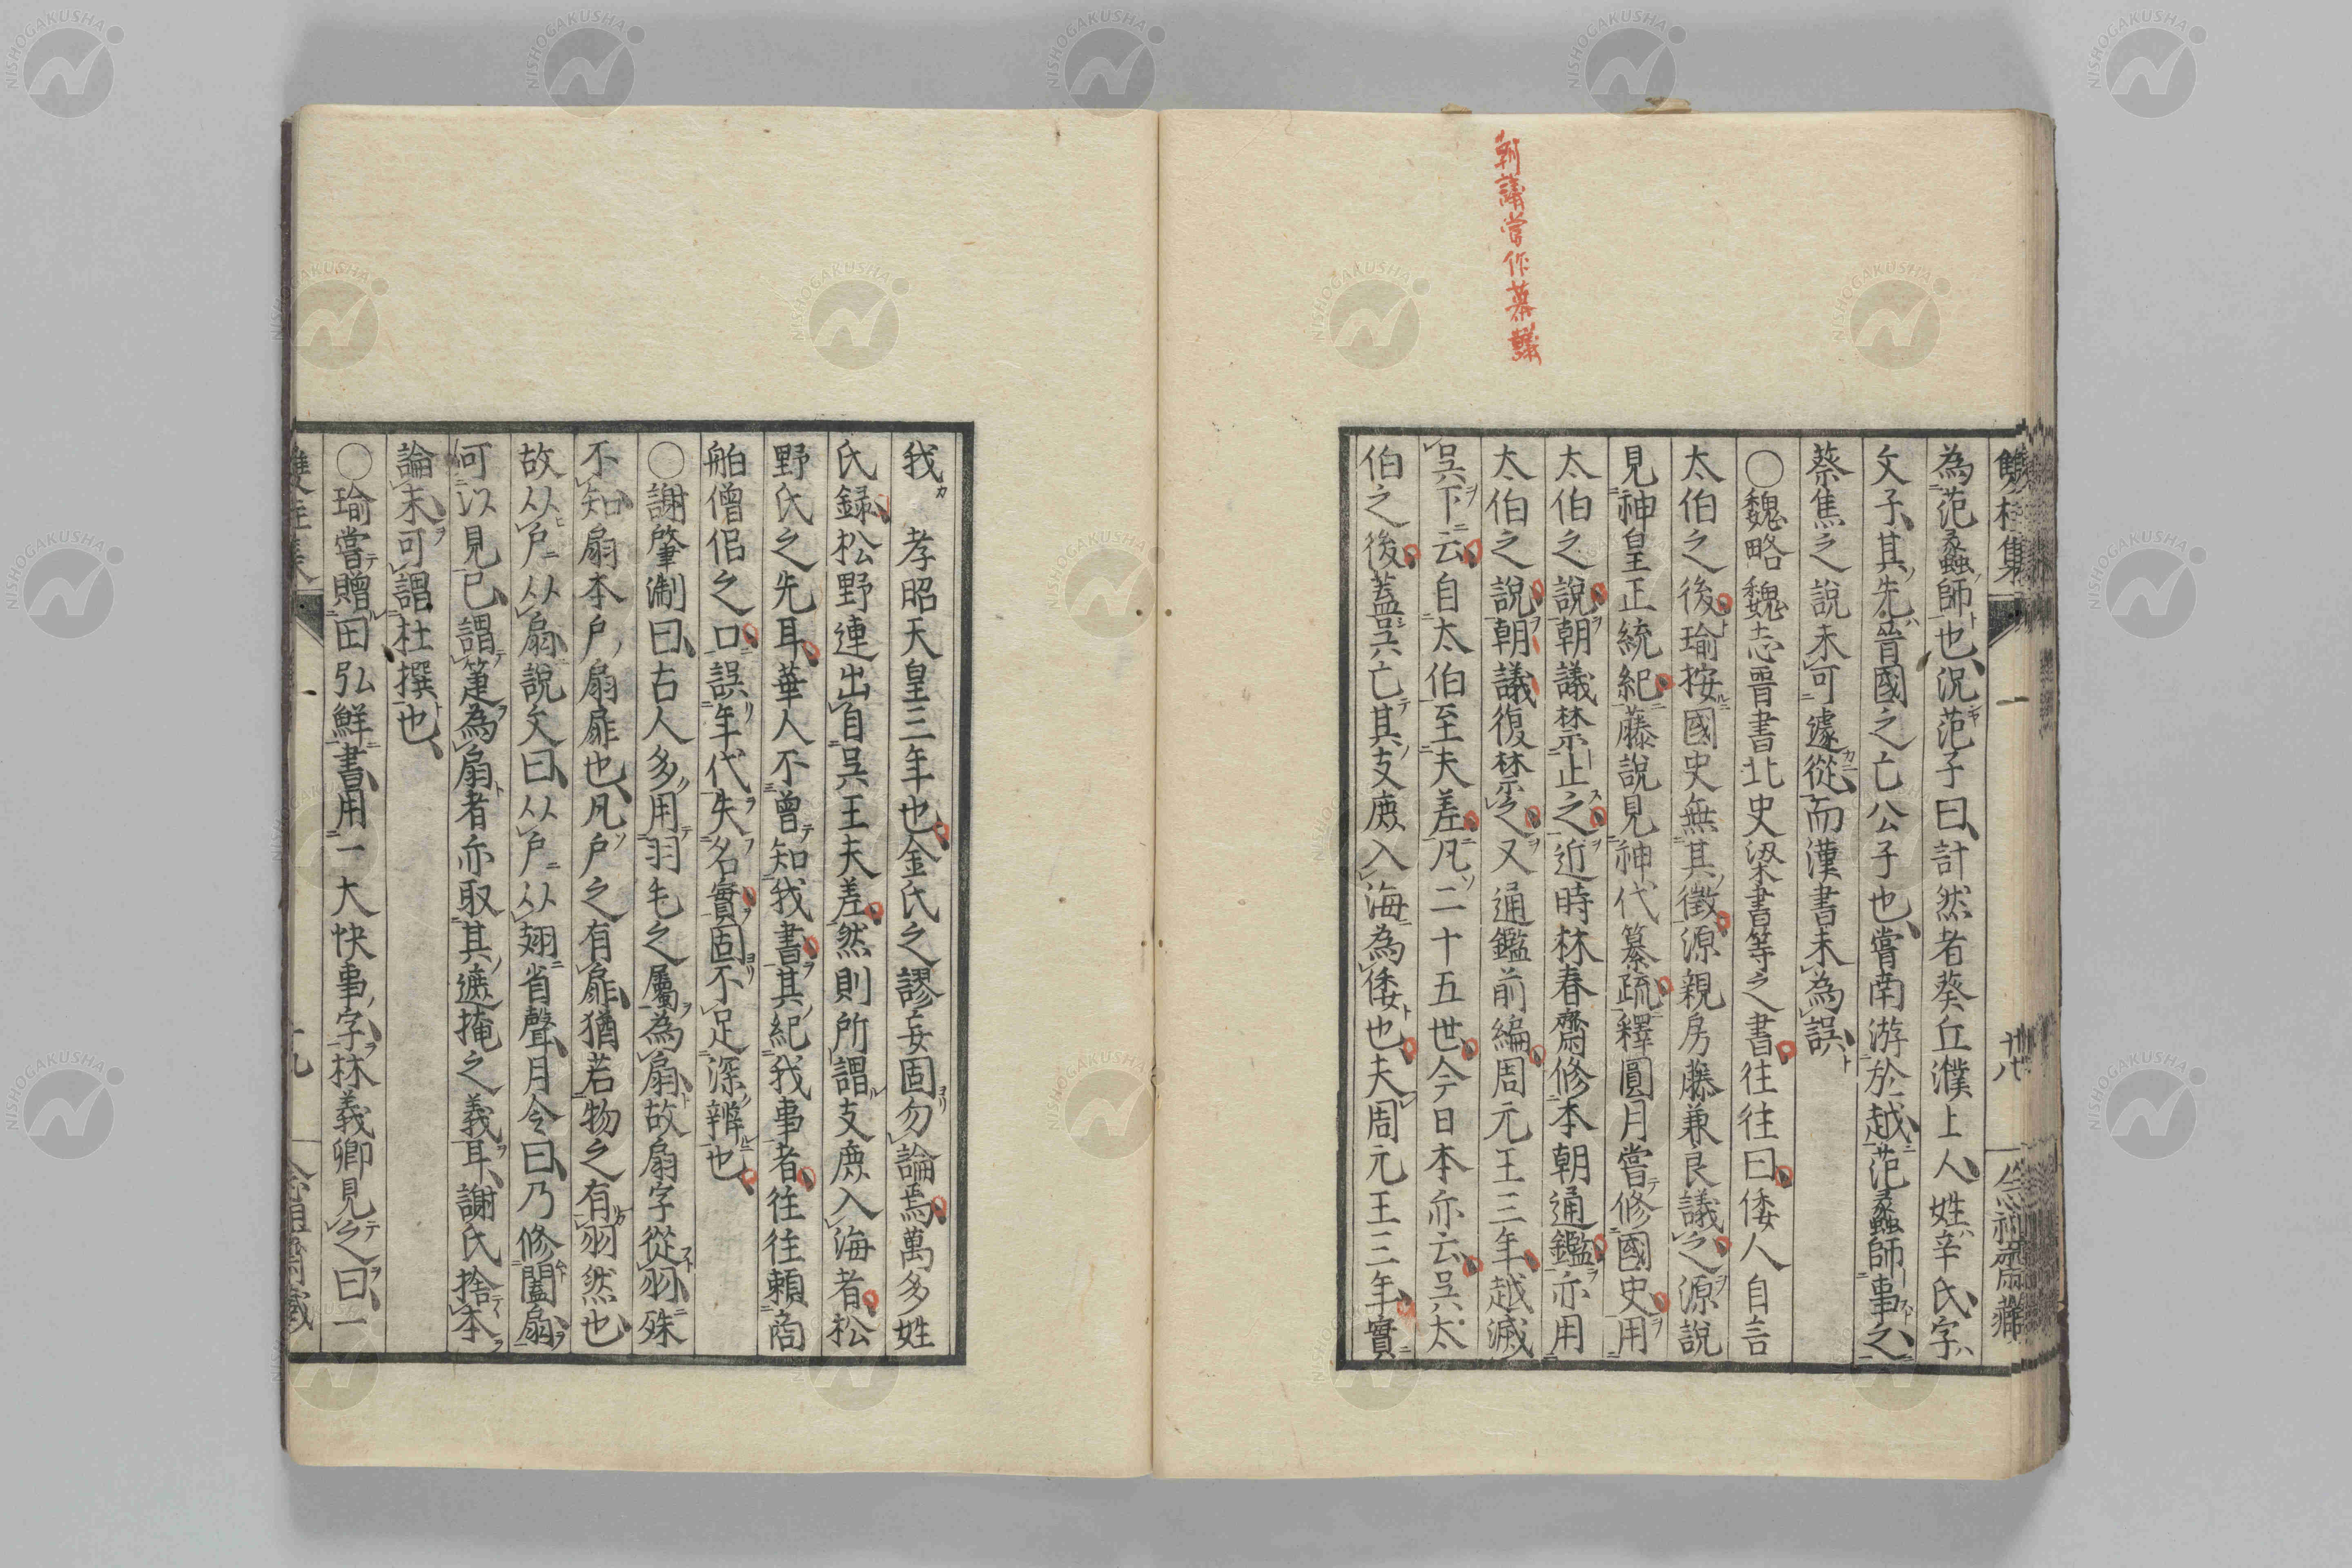 朝議當作幕議
雙桂集
一
十八
為范蠡師也況范子曰計然者葵丘濮上人姓辛氏字
文子其先晉國之亡公子也嘗南游於越范蠡師事之
蔡焦之說未可遽從而漢書未為誤
〇魏略魏志晉書北史梁書等之書往往曰倭人自言
太伯之後瑜按國史無其徵源親房藤兼良議之源說
見神皇正統紀藤說見神代纂疏釋圓月嘗修國史用
太伯之說朝議禁止之近時林春齋修本朝通鑑亦用
太伯之說朝議復禁之又通鑑前編周元王三年越滅
吳下云自太伯至夫差凡二十五世今日本亦云吳太
伯之後蓋吳亡其支庶入海為倭也夫周元王三年實
我 孝昭天皇三年也金氏之謬妄固勿論焉萬多姓
氏録松野連出自吳王夫差然則所謂支庶入海者松
野氏之先耳華人不曾知我書其紀我事者往往賴商
舶僧侶之口誤年代失名實固不足深辨也
〇謝肇淛曰古人多用羽毛之屬為扇故扇字從羽殊
不知扇本戶扇扉也凡戶之有扉猶若物之有羽然也
故从戶从扇說文曰从戶从翅省聲月令曰乃修闔扇
可以見已謂箑為扇者亦取其遮掩之義耳謝氏捨本
論末可謂杜撰也
〇瑜嘗贈田弘鮮書用一大快事字林義卿見之曰一
NISHOGAKUSHA